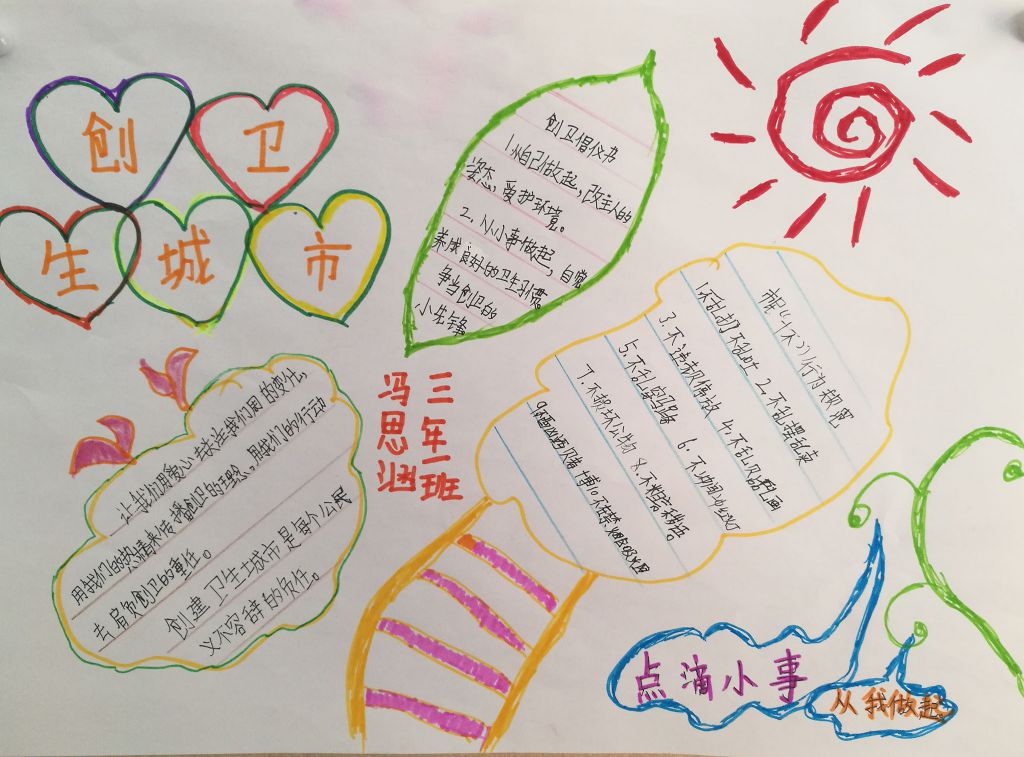 创 卫
生 城 市
创卫倡仪书
1.从自己做起,改主人的
姿态,爱护环境。
2.从小事做起,自觉
养成良好的卫生习惯
争当创卫的
小先锋
三年一班
冯思涵
市民"十不"行为规范
1.不乱扔不乱吐 2.不乱摆乱卖
3.不违规停放 4.不乱贴乱画
5.不乱穿马路 6.不
7.不损坏公物 8.不粗言秽语。
让我们用爱心去关注我们周围的变化,
用我们的热情来传播创卫的理念,用我们的行动
去肩负创卫的重任。
创建卫生城市是每个公民
义不容辞的负任。
点滴小事
从我做起。